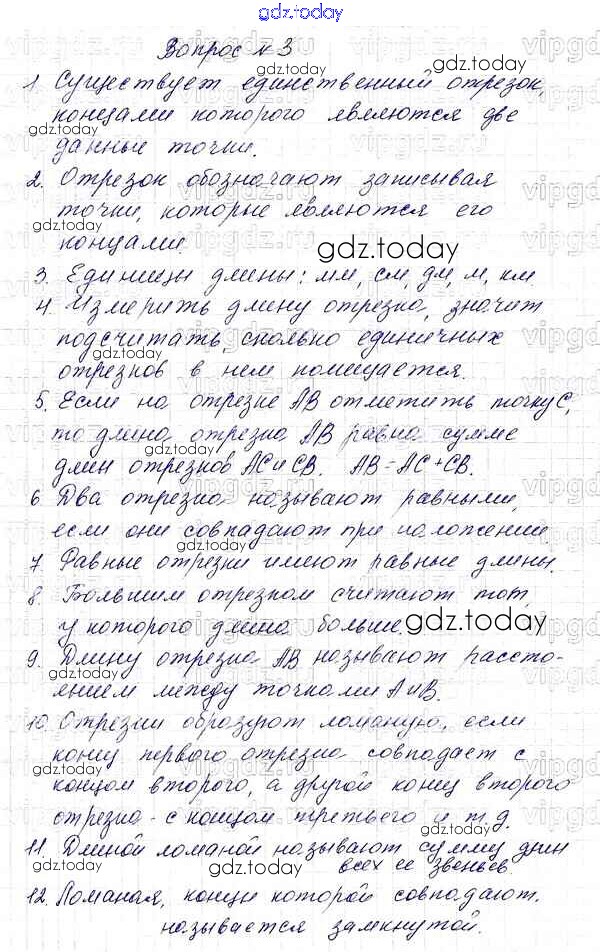 gdz.today
Вопрос №3
1. Существует единственный отрезок,
концами которого являются две
gdz.today
данные точки.
2. Отрезок обозначают записывая
gdz.today
точки, которые являются его
концами.
gdz.today
3. Единицы длины: мм, см, дм, м, км.
4. Измерить длину отрезка, значит
подсчитать, сколько единичных
gdz.today
отрезков в нем помещается.
5. Если на отрезке AB отметить точку C,
то длина отрезка AB равна сумме
gdz.today
длин отрезков AC и CB. AB=AC+CB.
6. Два отрезка называют равными,
если они совпадают при наложении.
gdz.today
7. Равные отрезки имеют равные длины.
8. Большим отрезком считают тот,
у которого длина больше.
gdz.today
9. Длину отрезка AB называют рассто-
янием между точками A и B.
gdz.today
10. Отрезки образуют ломаную, если
конец первого отрезка совпадает с
gdz.today
концом второго, а другой конец второго
отрезка - с концом третьего и т.д.
gdz.today
11. Длиной ломаной называют сумму длин
всех ее звеньев.
gdz.today
12. Ломаная, концы которой совпадают,
называется замкнутой.